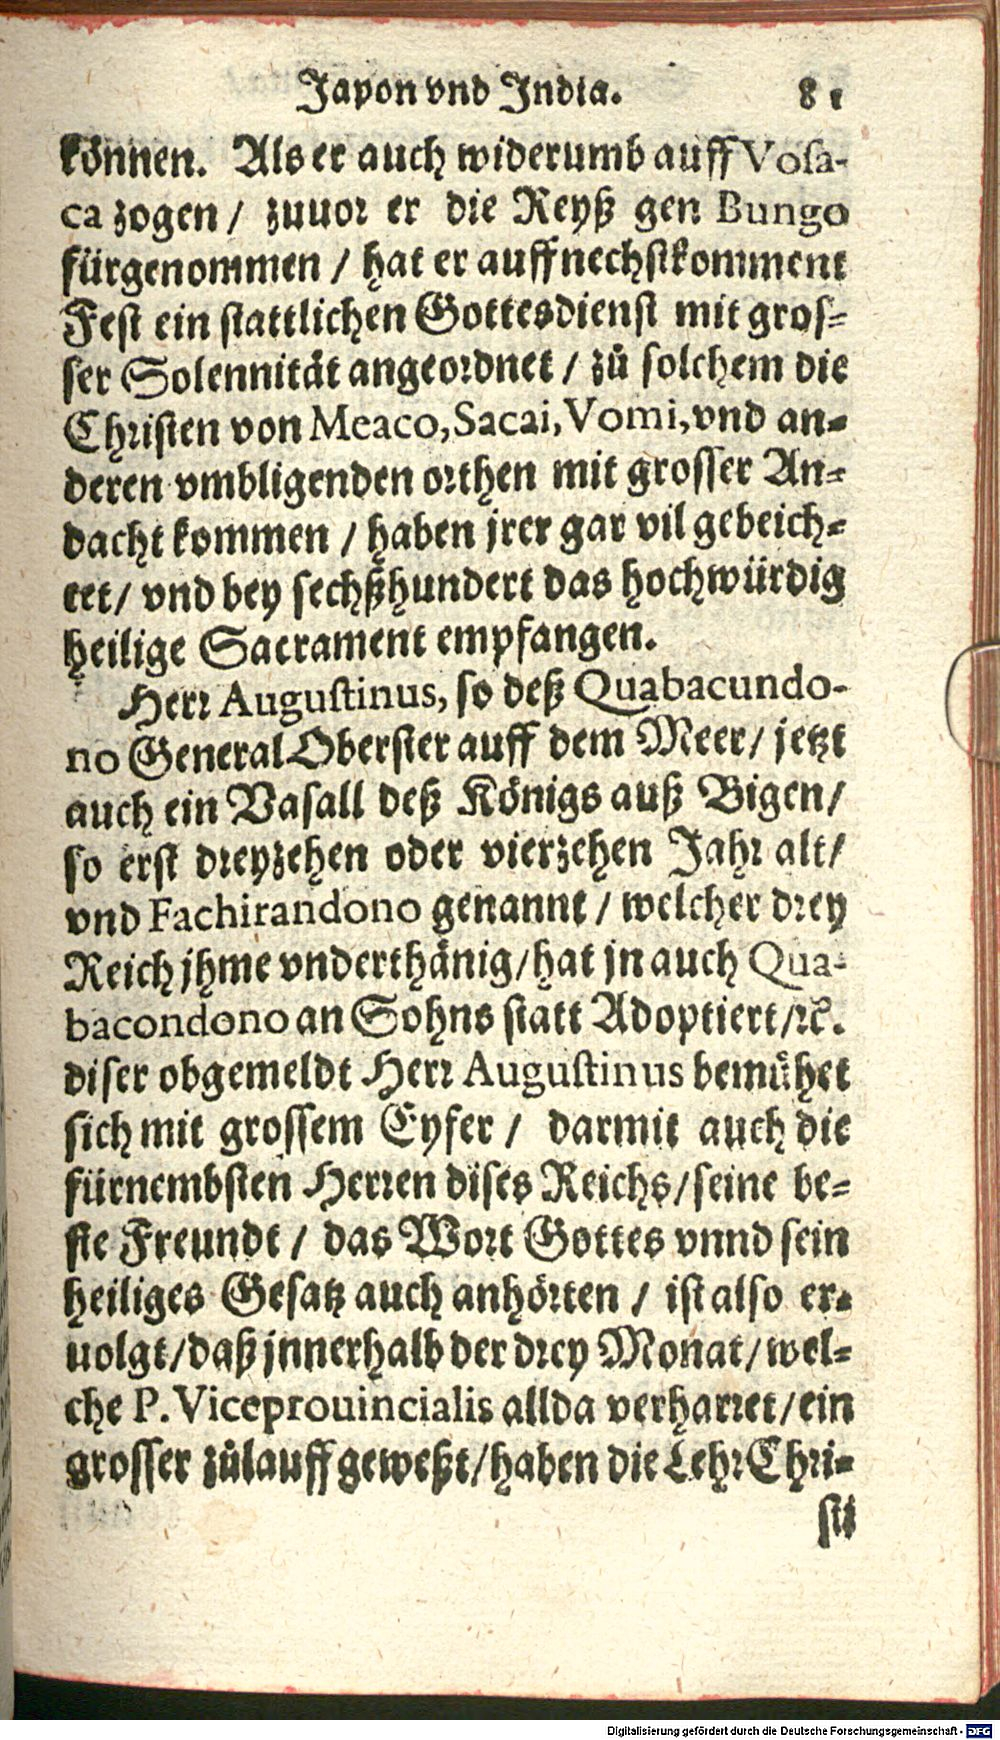 Japon vnd India. 81
können. Als er auch widerumb auff Vosa-
ca zogen / zuuor er die Reyß gen Bungo
fürgenommen / hat er auff nechstkomment
Fest ein stattlichen Gottesdienst mit gros-
ser Solennität angeordnet / zů solchem die
Christen von Meaco, Sacai, Vomi, vnd an-
deren vmbligenden orthen mit grosser An-
dacht kommen / haben jrer gar vil gebeich-
tet / vnd bey sechßhundert das hochwürdig
heilige Sacrament empfangen.
Herr Augustinus, so deß Quabacundo-
no General Oberster auff dem Meer / jetzt
auch ein Vasall deß Königs auß Bigen /
so erst dreyzehen oder vierzehen Jahr alt /
vnd Fachirandono genannt / welcher drey
Reich jhme vnderthänig / hat jn auch Qua-
bacondono an Sohns statt Adoptiert / ꝛc.
diser obgemeldt Herr Augustinus bemühet
sich mit grossem Eyfer / darmit auch die
fürnembsten Herren dises Reichs / seine be-
ste Freundt / das Wort Gottes vnnd sein
heiliges Gesatz auch anhörten / ist also er-
uolgt / daß jnnerhalb der drey Monat / wel-
che P. Viceprouincialis allda verharret / ein
grosser zůlauff geweßt / haben die Lehr Chri-
sti
Digitalisierung gefördert durch die Deutsche Forschungsgemeinschaft - DFG